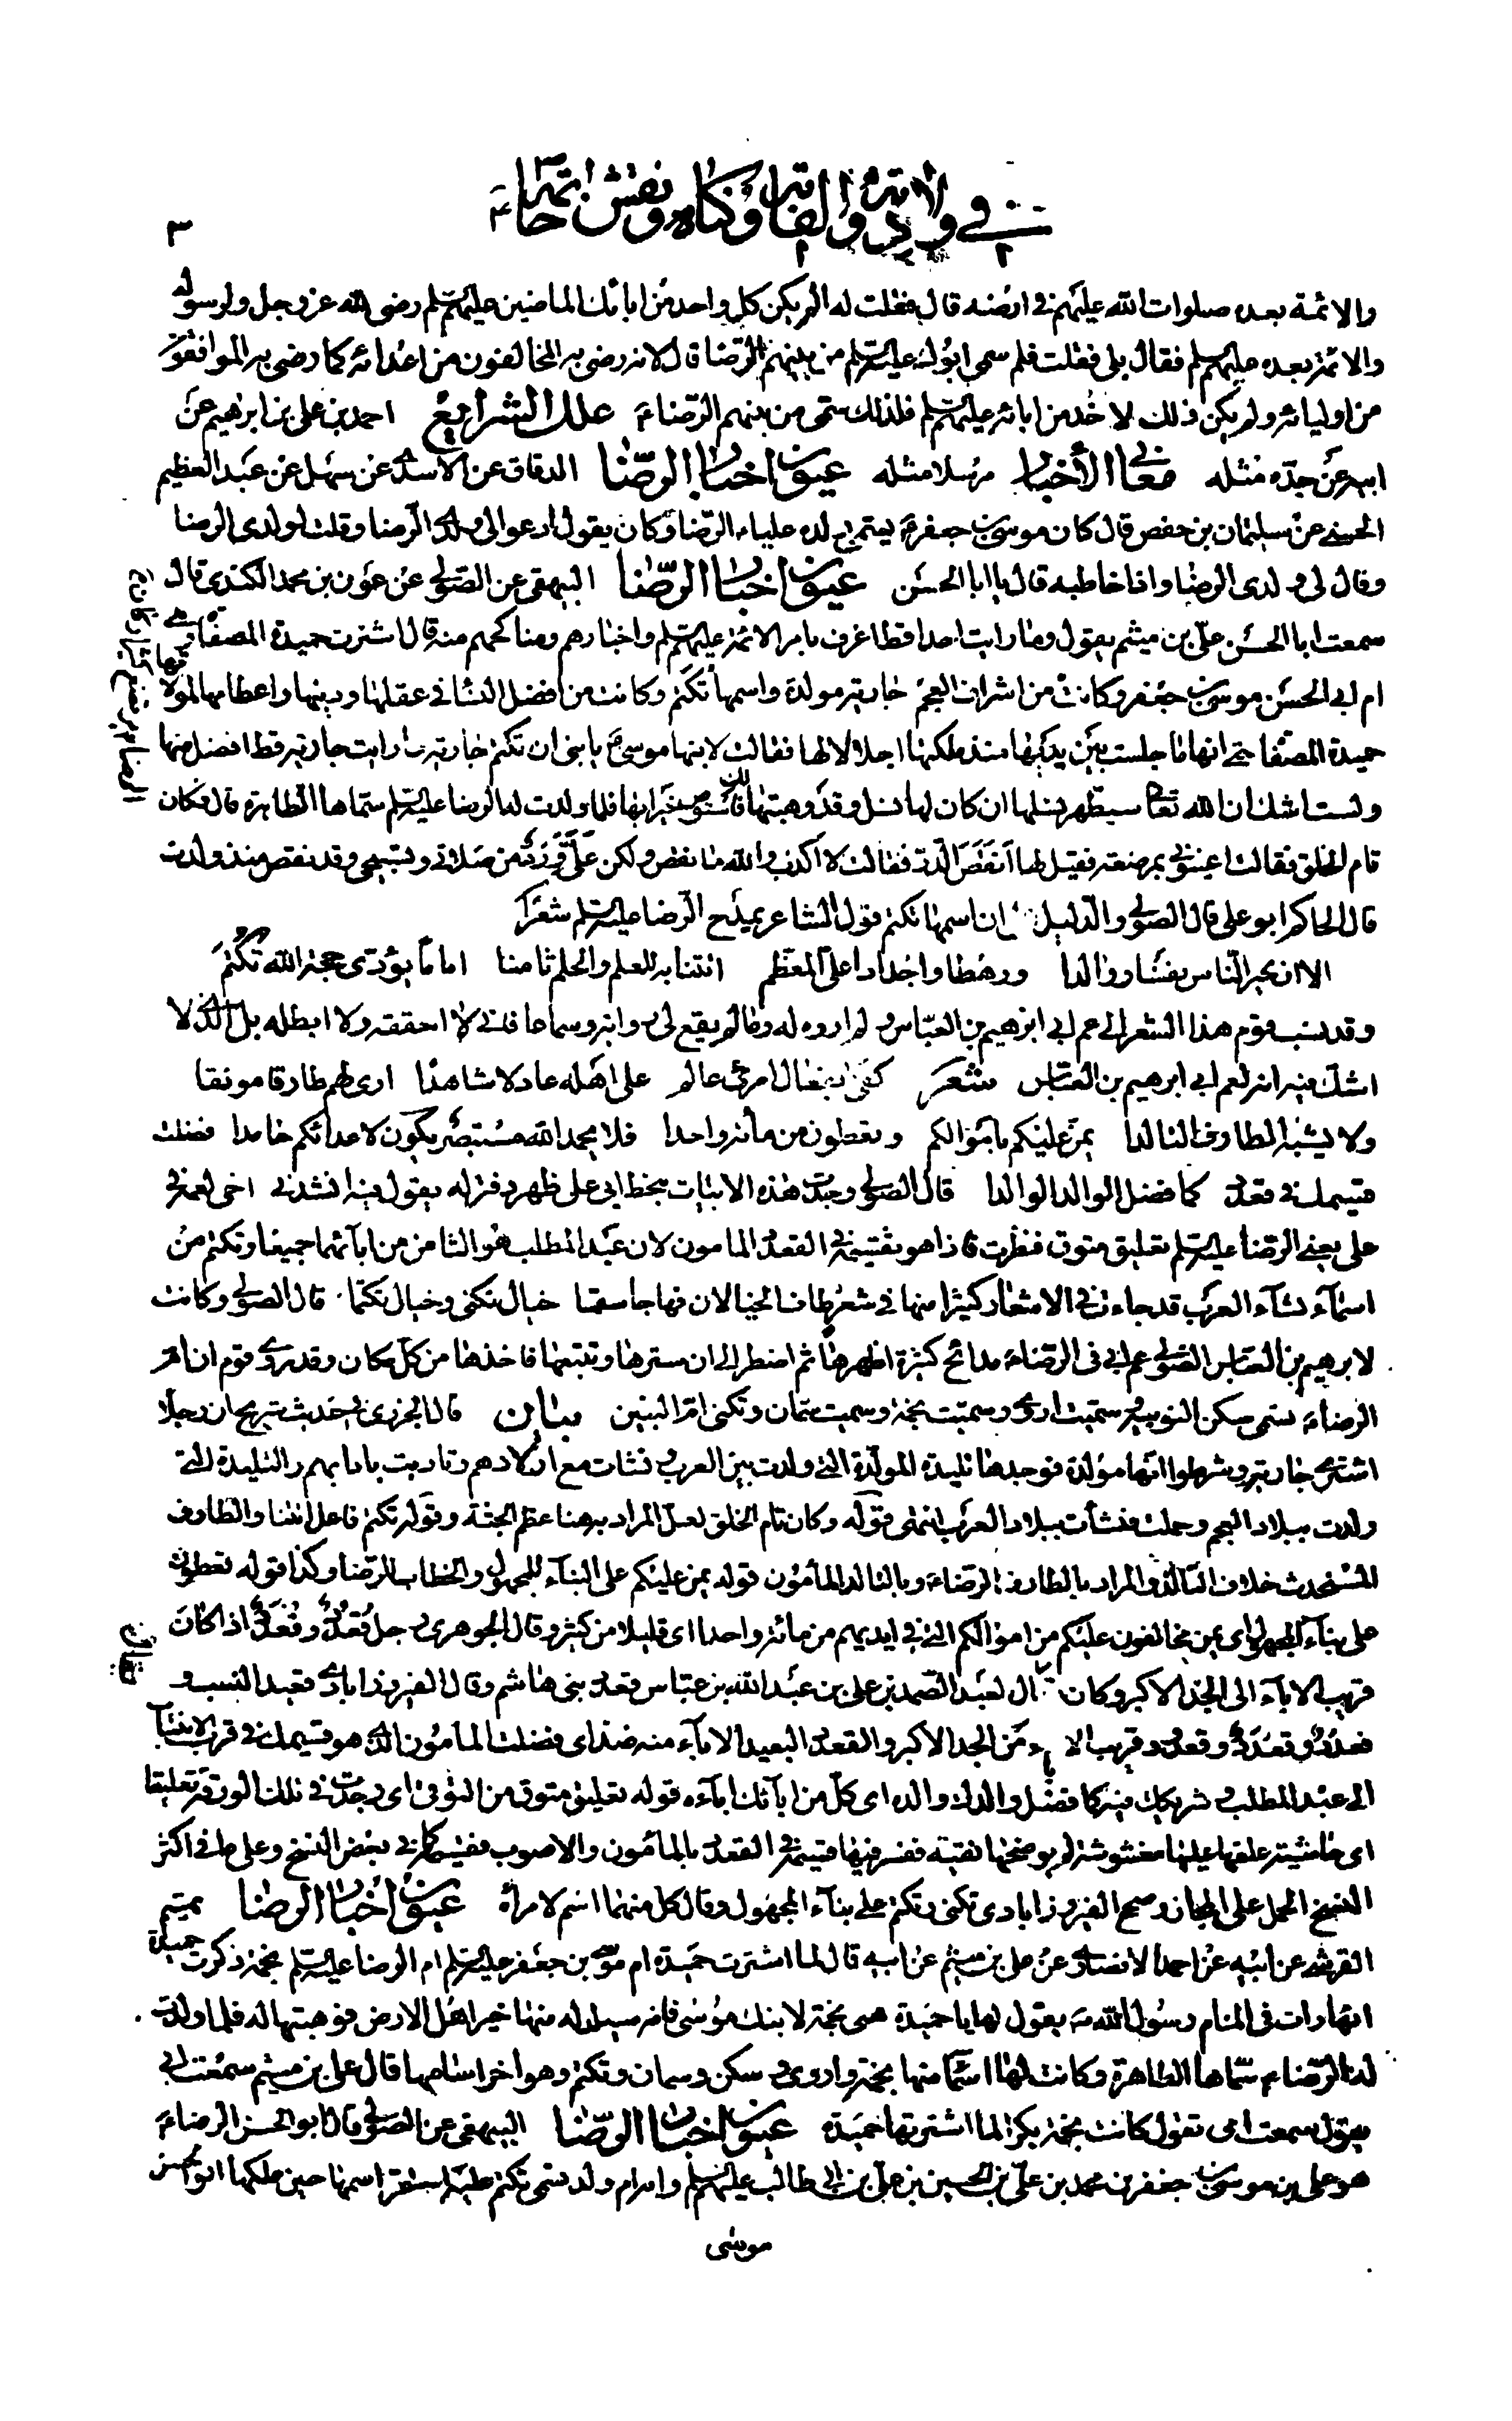 في ولادته والقابه وكناه ونقش خاتمه
٣
والائمة بعده صلوات الله عليهم في ارضه قال فقلت له الم يكن كل واحد من ابائك الماضين عليهم السلم رضى لله عز وجل ولرسوله
والائمة بعده عليهم السلم فقال بلى فقلت فلم سمى ابوك عليه السلم من بينهم الرضا قال لانه رضى به المخالفون من اعدائه كما رضى به الموافقون
من اوليائه ولم يكن ذلك لاحد من ابائه عليهم السلم فلذلك سمى من بينهم الرضاء علل الشرايع احمد بن على بن ابرهيم عن
ابيه عن جده مثله معاني الأخبار مرسلا مثله عيون اخبار الرضا الدقاق عن الاسدى عن سهل عن عبد العظيم
الحسنى عن سليمان بن حفص قال كان موسى بن جعفر يسمى ولده عليا الرضا وكان يقول ادعوا لى ولدى الرضا وقلت لولدى الرضا
وقال لى ولدى الرضا واذا خاطبه قال يا ابا الحسن عيون اخبار الرضا البيهقى عن الصولى عن عون بن محمد الكندى قال
سمعت ابا الحسن على بن ميثم يقول وما رايت احدا قط اعرف بامر الائمة عليهم السلم واخبارهم ومناكحهم منه قال اشترت حميدة المصفاة وهى
ام ابى الحسن موسى بن جعفر وكانت من اشراف العجم جارية مولدة واسمها تكتم وكانت من افضل النساء فى عقلها ودينها واعظامها لمولاتها
حميدة المصفاة حتى انها ما جلست بين يديها منذ ملكتها اجلالا لها فقالت لابنها موسى يا بنى ان تكتم جارية ما رايت جارية قط افضل منها
ولست اشك ان الله تعالى سيطهر نسلها ان كان لها نسل وقد وهبتها لك فاستوص خيرا بها فلما ولدت له الرضا عليه السلم سماها الطاهرة قال وكان
الرضا يرتضع كثيرا وكان
تام الخلق فقالت اعينونى بمرضعة فقيل لها انقص الدر فقالت لا اكذب والله ما نقص ولكن على ورد من صلاتى وتسبيحى وقد نقص منذ ولدت
قال الحاكم ابو على قال الصولى والدليل على ان اسمها تكتم قول الشاعر يمدح الرضا عليه السلم شعر
الا ان خير الناس نفسا ووالدا ورهطا واجدادا على المعظم اتتنا به للعلم والحلم ثامنا اماما يؤدى حجة الله تكتم
وقد نسب قوم هذا الشعر الى عم ابى ابرهيم بن العباس ولم اروه له وما لم يقع لى رواية وسماعا فانى لا احققه ولا ابطله بل الذى لا
اشك فيه انه لعم ابى ابرهيم بن العباس شعر كفى بفعال امرئ عالم على اهله عادلا شاهدا ارى لهم طارفا مونقا
ولا يشبه الطارف التالدا يمن عليكم باموالكم وتعطون من مائة واحدا فلا يحمد الله مستبصر يكون لاعدائكم حامدا فضلت
قسيمك فى قعدد كما فضل الوالد الوالدا قال الصولى وجدت هذه الابيات بخط ابى على ظهر دفتر له يقول فيه انشدنى اخى لعمه فى
على يعنى الرضا عليه السلم تعليق متوق فنظرت فاذا هو بقسيمه فى القعدد المامون لان عبد المطلب هو الثامن من ابائهما جميعا وتكتم من
اسماء نساء العرب قد جاءت فى الاشعار كثيرا منها فى شعر طاف الخيالان فهاجا سقما خيال تكنى وخيال تكتما قال الصولى وكانت
لابرهيم بن العباس الصولى عم ابى فى الرضاء مدائح كثيرة اظهرها ثم اضطر الى ان سترها وتتبعها فاخذها من كل مكان وقد روى قوم ان ام
الرضاء تسمى سكن النوبية وسميت اروى وسميت نجمة وسميت سمان وتكنى ام البنين بيان قال الجزرى فى حديث شريح ان رجلا
اشترى جارية وشرطوا انها مولدة فوجدها تليدة المولدة التى ولدت بين العرب ونشات مع اولادهم وتادبت بادابهم والتليدة التى
ولدت ببلاد العجم وحملت فنشأت ببلاد العرب انتهى قوله وكان تام الخلق لعل المراد به هنا عظم الجثة وقوله تكتم فاعل اتتنا والطارف
المستحدث خلاف التالد والمراد بالطارف الرضاء وبالتالد المأمون قوله يمن عليكم على البناء للمجهول والخطاب للرضا وكذا قوله تعطون
على بناء المجهول اى يمن مخالفون عليكم من اموالكم التى فى ايديهم من مائة واحدا اى قليلا من كثير وقال الجوهرى رجل قعدد وقعدد اذا كان
قريب الاباء الى الجد الاكبر وكان يقال لعبد الصمد بن على بن عبد الله بن عباس قعدد بنى هاشم وقال الفيروزابادى قعيد النسب و
قعدد وقعدد وقعدود قريب الاباء من الجد الاكبر والقعدد البعيد الاباء منه ضد اى فضلت المامون الذى هو قسيمك فى قرب الانتساب
الى عبد المطلب وشريكك فيه كما فضل والدك والده اى كل من ابائك اباءه قوله تعليق متوق من التوقى اى وجدت فى تلك الورقة تعليقا
اى حاشية علقها عليها مغشوشة لم يوضحها تقية ففسر فيها قسيمه فى القعدد بالمأمون والاصوب بقسيمك كما فى بعض النسخ وعلى ما فى اكثر
النسخ الحمل على المجاز وصحح الفيروزابادى تكنى وتكتم على بناء المجهول وقال كل منهما اسم لامراة عيون اخبار الرضا تميم
القرشى عن ابيه عن احمد الانصارى عن على بن ميثم عن ابيه قال لما اشترت حميدة ام موسى بن جعفر عليه السلم ام الرضا عليه السلم نجمة ذكرت حميدة
انها رات فى المنام رسول الله ص يقول لها يا حميدة هبى نجمة لابنك موسى فانه سيولد له منها خير اهل الارض فوهبتها له فلما ولدت
له الرضاء سماها الطاهرة وكانت لها اسماء منها نجمة واروى وسكن وسمان وتكتم وهو اخر اساميها قال على بن ميثم سمعت ابى
يقول سمعت امى تقول كانت نجمة بكرا لما اشترتها حميدة عيون اخبار الرضا البيهقى عن الصولى قال ابو الحسن الرضاء
هو على بن موسى بن جعفر بن محمد بن على بن الحسين بن على بن ابى طالب عليهم السلم وامه ام ولد تسمى تكتم عليه استقر اسمها حين ملكها ابو الحسن
موسى